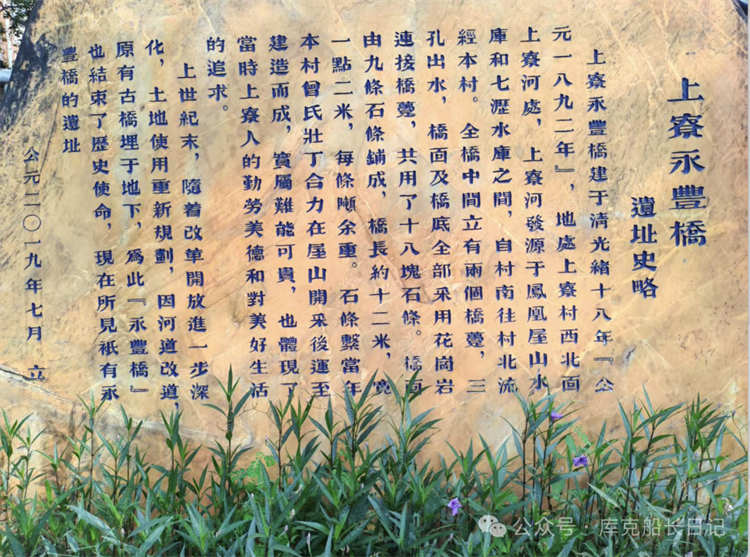 上寮永豐橋
遺址史略
上寮永豐橋建于清光緒十八年『公
元一八九二年』，地處上寮村西北面
上寮河處，上寮河發源于鳳凰屋山水
庫和七瀝水庫之間，自村南往村北流
經本村。全橋中間立有兩個橋躉，三
孔出水，橋面及橋底全部采用花崗岩
連接橋躉，共用了十八塊石條。橋面
由九條石條鋪成，橋長約十二米，寬
一點二米，每條噸余重。石條繫當年
本村曾氏壯丁合力在屋山開采後運至
建造而成，實屬難能可貴，也體現了
當時上寮人的勤勞美德和對美好生活
的追求。
上世紀末，隨着改革開放進一步深
化，土地使用重新規劃，因河道改道，
原有古橋埋于地下，爲此『永豐橋』
也結束了歷史使命，現在所見衹有永
豐橋的遺址
公元二〇一九年七月 立
公众号·库克船长日记